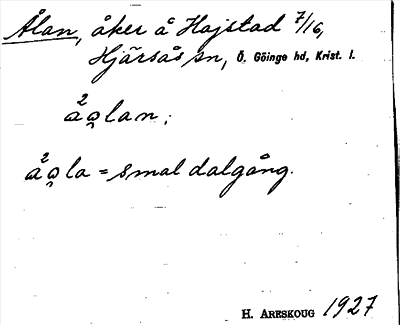 Ålan, åker å Hajstad 7/16,
Hjärsås sn, Ö. Göinge hd, Krist. l.
åo̯lan;
åo̯la = smal dalgång.
H. ARESKOUG 1927